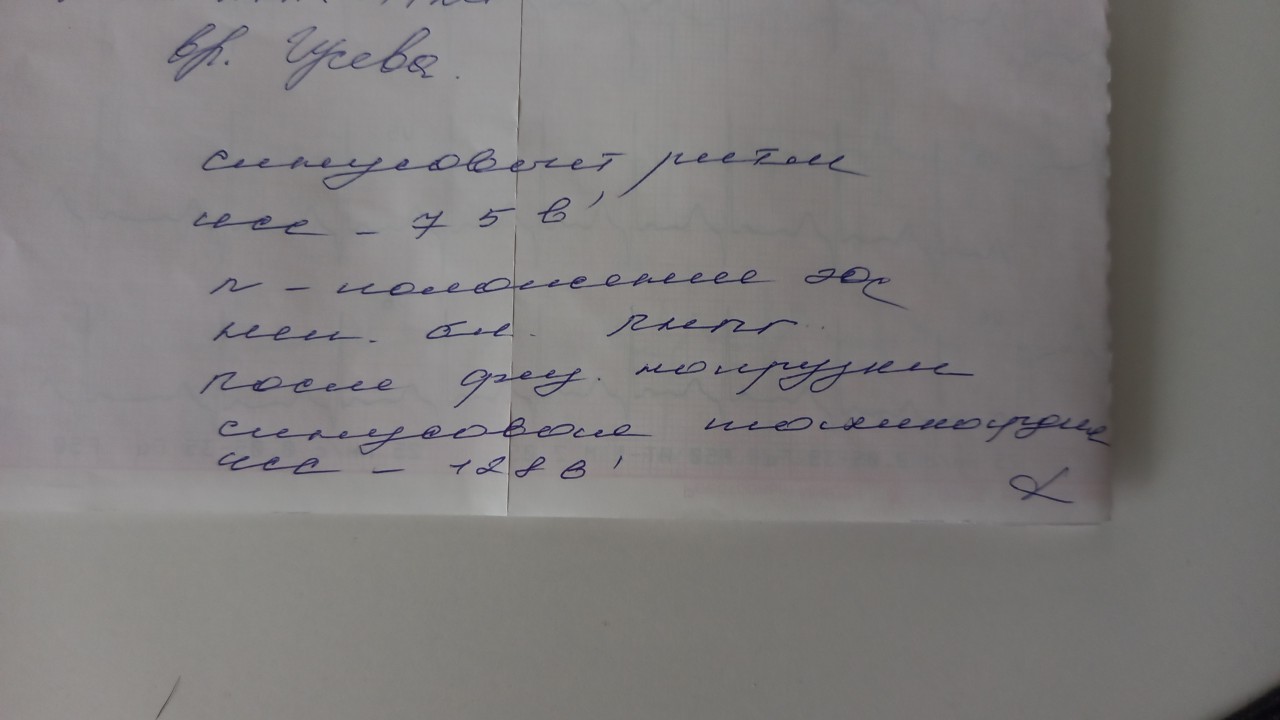 вр. Гусева.
синусовый ритм
чсс - 75 в'
n - положение эос
неп. бл. пнпг.
после физ. нагрузки
синусовая тахикардия
чсс - 128 в'